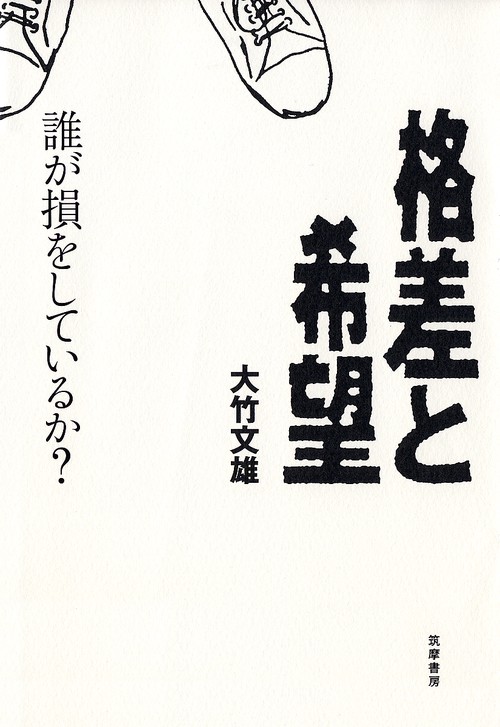 格差と
希望
大竹文雄
誰が損をしているか?
筑摩書房